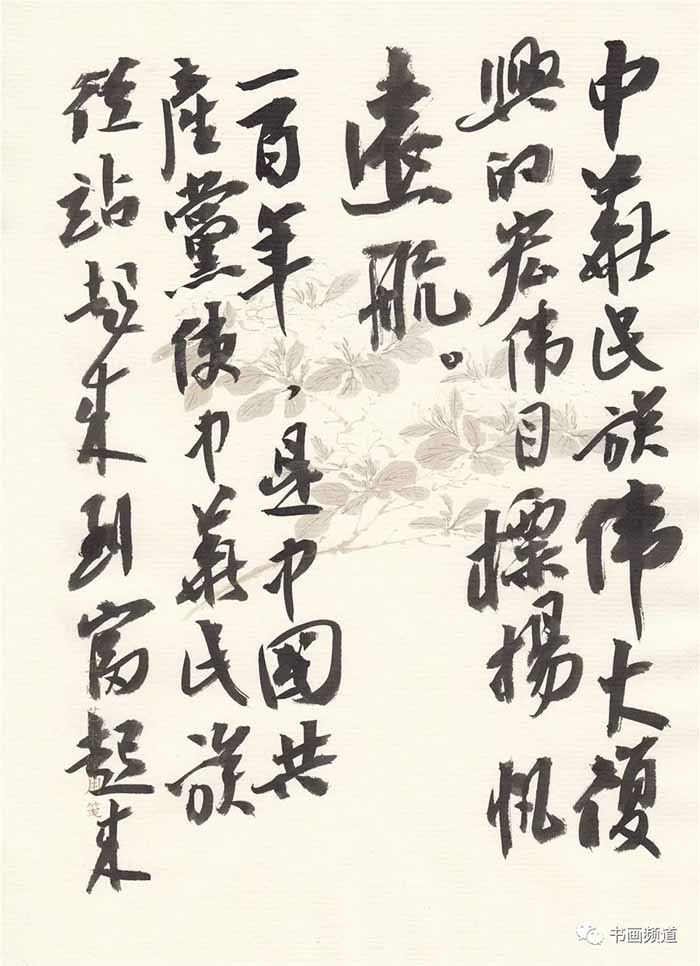 中華民族伟大復
興的宏伟目標揚帆
遠航。
一百年，是中国共
產黨使中華民族
從站起来到富起来
书画频道